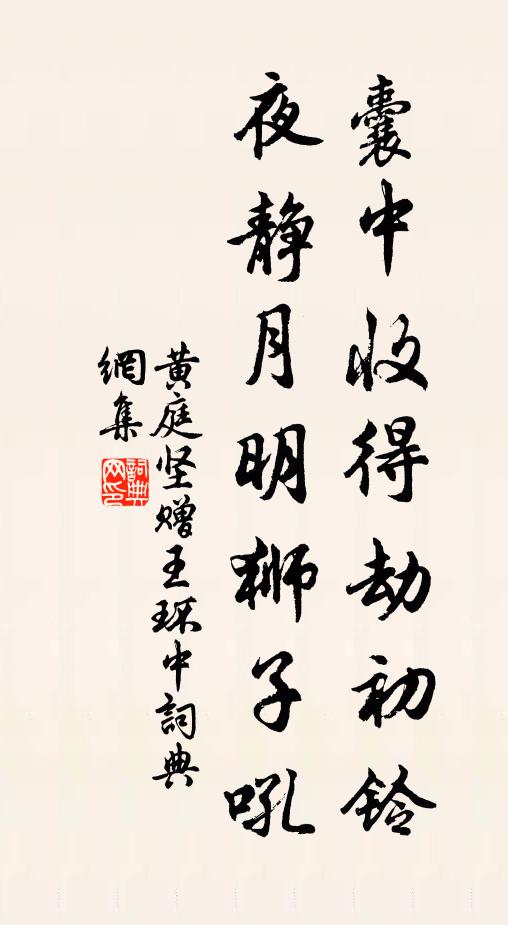 囊中收得劫初铃
夜静月明狮子吼
黄庭坚赠王环中詞典
網集
詞典网印